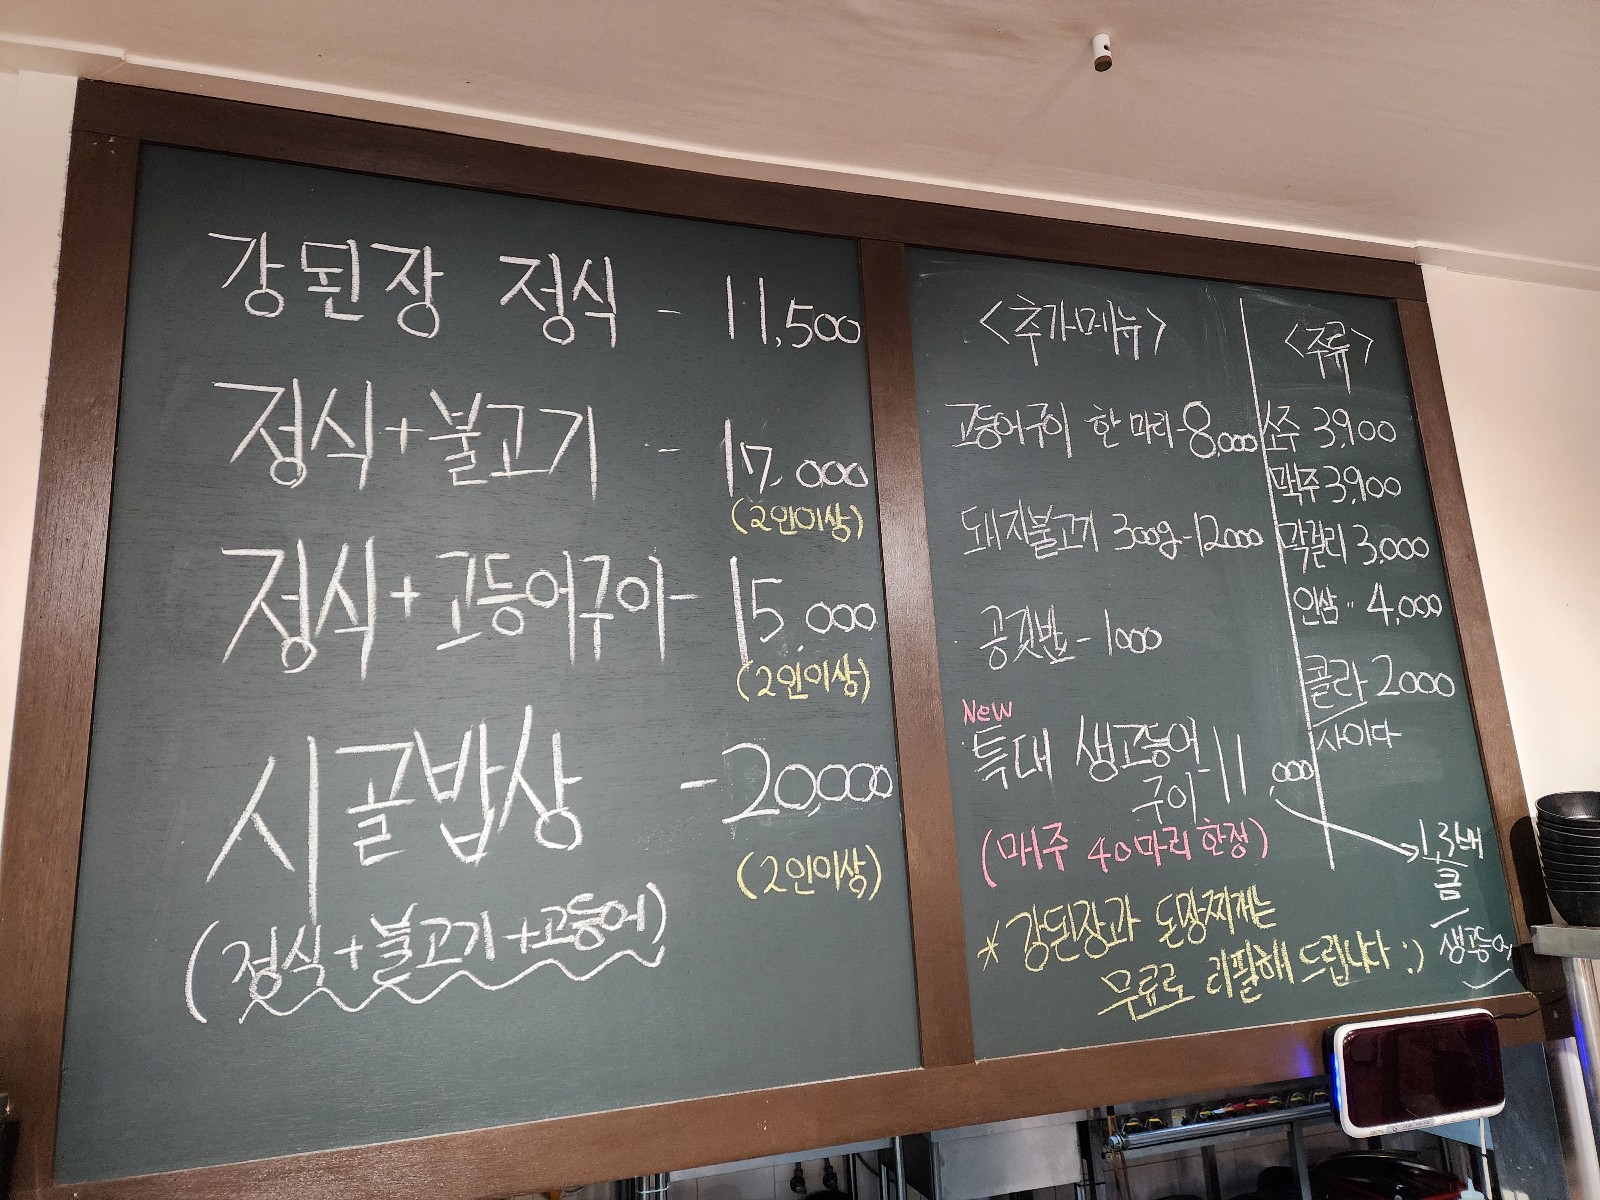 강된장 정식 - 11,500
정식+불고기 - 17,000
(2인이상)
정식+고등어구이- 15,000
(2인이상)
시골밥상 - 20,000
(2인이상)
(정식+불고기+고등어)
<추가메뉴>
고등어구이 한 마리-8,000
돼지불고기 300g-12000
공깃밥-1000
New
특대 생고등어
구이-11,000
(매주 40마리 한정)
1.3배
큼
생고등어
*강된장과 돈망찌개는
무료로 리필해 드립니다 :)
<주류>
소주 3,900
맥주 3,900
막걸리 3,000
인삼 〃 4,000
콜라 2000
사이다